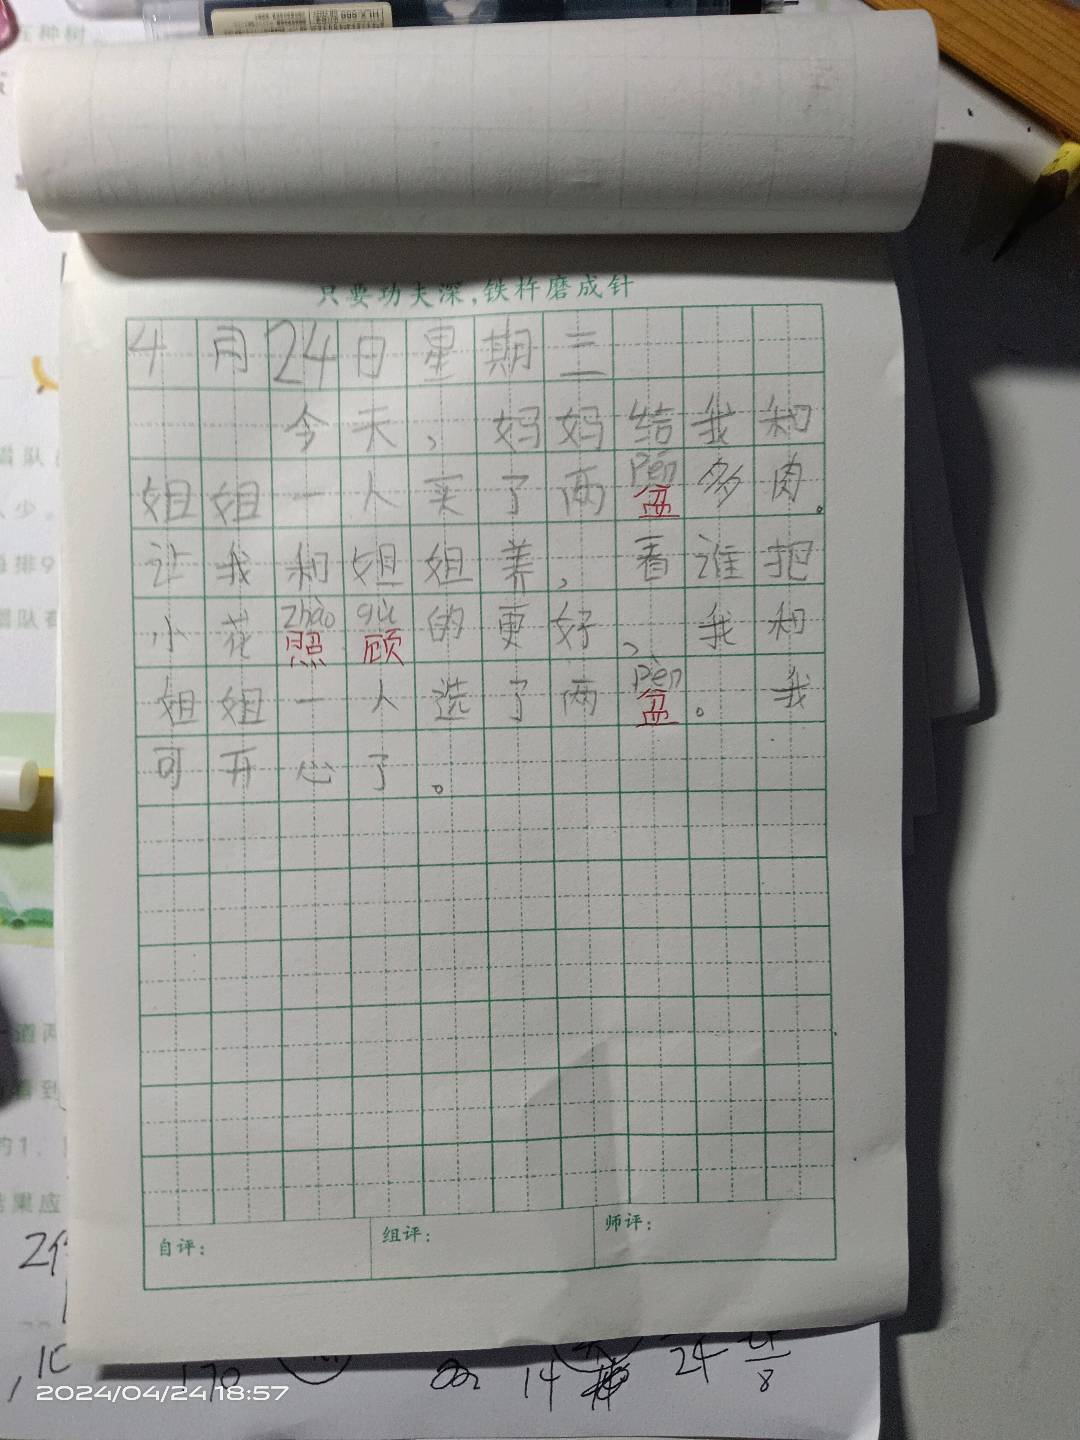 只要功夫深,铁杵磨成针
4月24日星期三
今天，妈妈结我和
pén
姐姐一人买了两盆多肉。
让我和姐姐养，看谁把
zhào gù
小花照顾的更好、我和
pén
姐姐一人选了两盆。我
可开心了。
自评：
组评：
师评：
2024/04/24 18:57
170
14
24
8
10